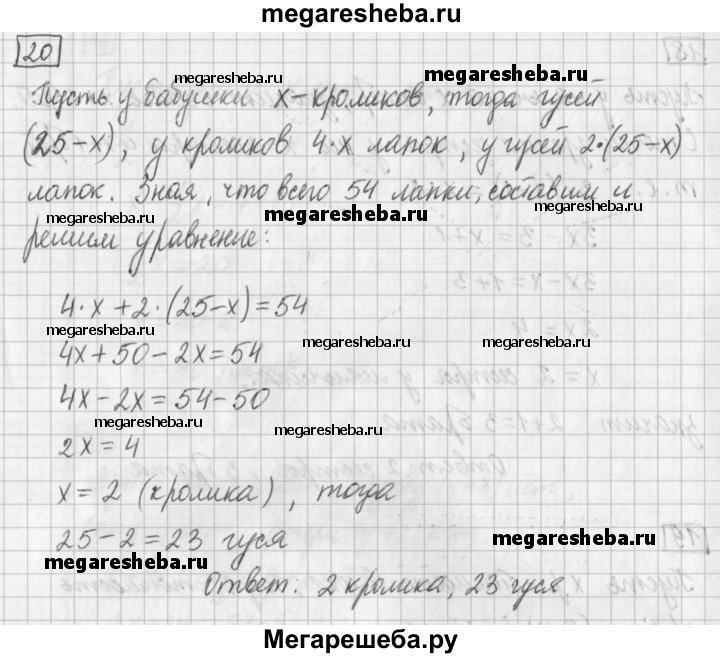 megaresheba.ru
20
megaresheba.ru
megaresheba.ru
Пусть у бабушки x-кроликов, тогда гусей
(25-x), у кроликов 4·x лапок, у гусей 2·(25-x)
лапок. Зная, что всего 54 лапки, составим и
megaresheba.ru
megaresheba.ru
megaresheba.ru
решим уравнение:
4·x+2·(25-x)=54
megaresheba.ru
megaresheba.ru
megaresheba.ru
4x+50-2x=54
4x-2x=54-50
megaresheba.ru
megaresheba.ru
2x=4
x=2 (кролика), тогда
25-2=23 гуся
megaresheba.ru
megaresheba.ru
Ответ: 2 кролика, 23 гуся
megaresheba.ru
Мегарешеба.ру